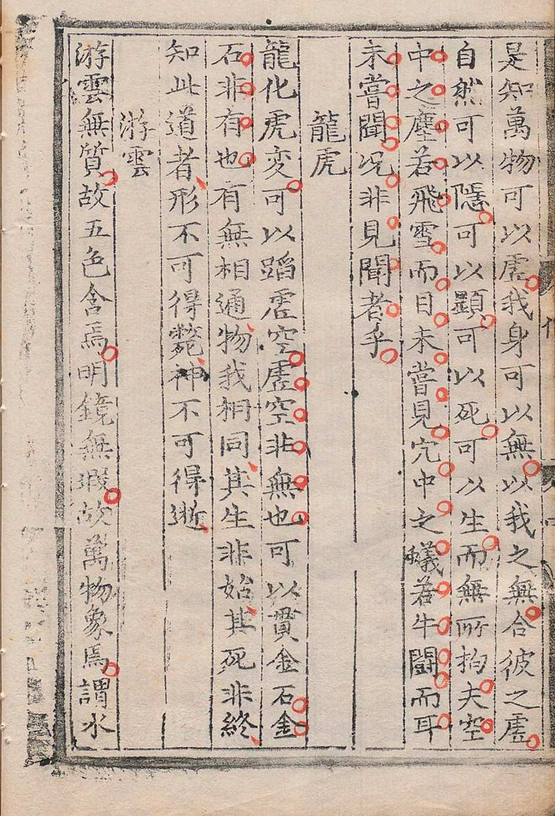 是知萬物可以虛我身可以無以我之無合彼之虛
自然可以隱可以顯可以死可以生而無所拘夫空
中之塵若飛雪而目未嘗見穴中之蟻若牛鬪而耳
未嘗聞况非見聞者乎
龍虎
龍化虎变可以蹈虛空虛空非無也可以貫金石金
石非有也有無相通物我相同其生非始其死非終
知此道者形不可得斃神不可得逝
游雲
游雲無質故五色含焉明鏡無瑕故萬物象焉謂水